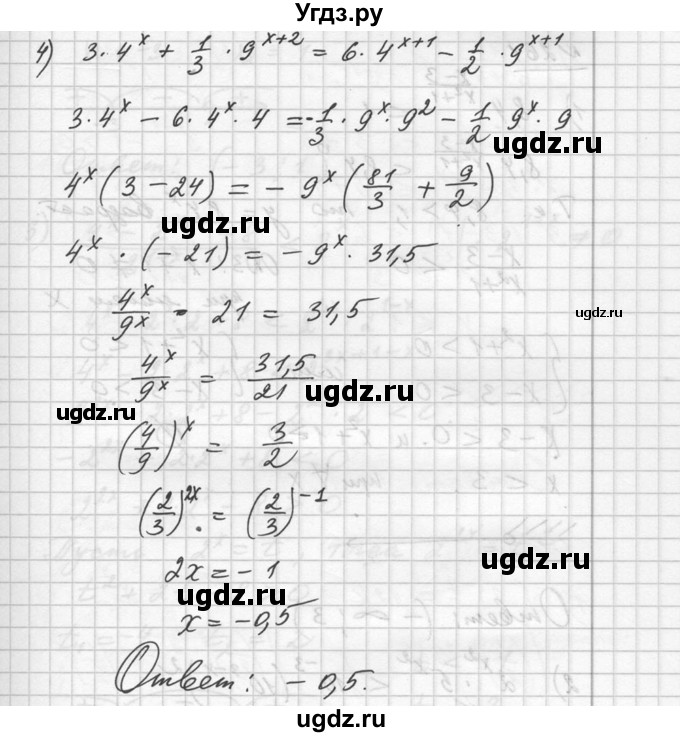 Угдз.ру
4) 3·4^x + 1/3 · 9^(x+2) = 6·4^(x+1) − 1/2 · 9^(x+1)
3·4^x − 6·4^x·4 = −1/3 · 9^x · 9^2 − 1/2 9^x · 9
ugdz.ru
4^x (3 − 24) = − 9^x (81/3 + 9/2)
ugdz.ru
4^x · (−21) = − 9^x · 31,5
4^x/9^x · 21 = 31,5
ugdz.ru
4^x/9^x = 31,5/21
ugdz.ru
ugdz.ru
(4/9)^x = 3/2
(2/3)^2x = (2/3)^−1
ugdz.ru
2x = −1
ugdz.ru
x = −0,5
Ответ: −0,5.
ugdz.ru
ugdz.ru